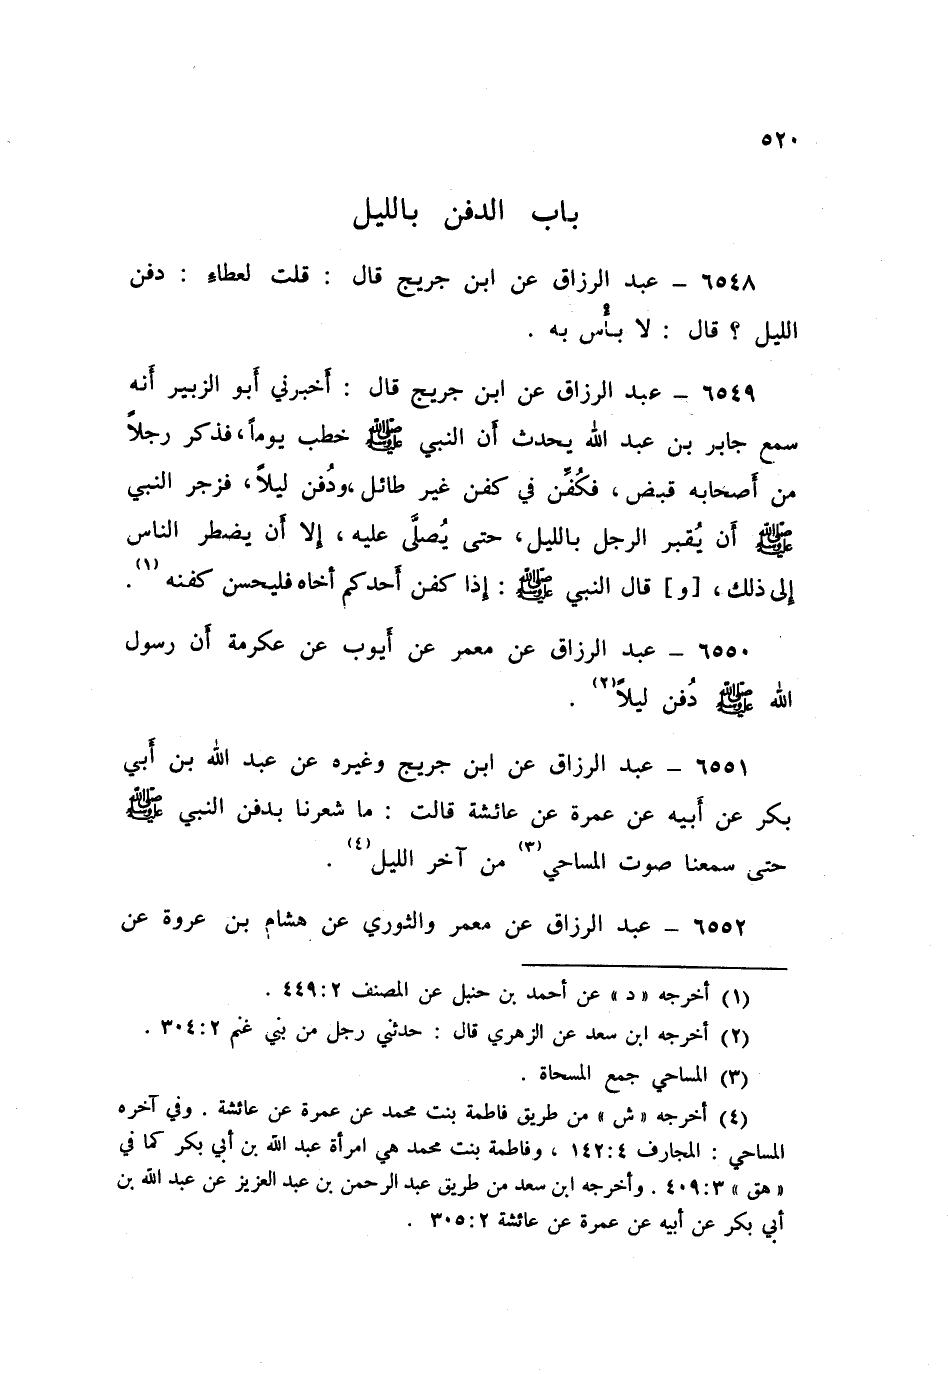 ٥٢٠
باب الدفن بالليل
٦٥٤٨ – عبد الرزاق عن ابن جريج قال : قلت لعطاء : دفن
الليل ؟ قال : لا بأس به .
٦٥٤٩ – عبد الرزاق عن ابن جريج قال : أخبرني أبو الزبير أنه
سمع جابر بن عبد الله يحدث أن النبي ﷺ خطب يوماً، فذكر رجلاً
من أصحابه قبض ، فكُفِّن في كفن غير طائل ،ودُفن ليلاً، فزجر النبي
ﷺ أن يُقبر الرجل بالليل، حتى يُصلَّى عليه ، إلا أن يضطر الناس
إلى ذلك ، [و] قال النبي ﷺ : إذا كفن أحدكم أخاه فليحسن كفنه (١) .
٦٥٥٠ – عبد الرزاق عن معمر عن أيوب عن عكرمة أن رسول
الله ﷺ دُفن ليلاً (٢) .
٦٥٥١ – عبد الرزاق عن ابن جريج وغيره عن عبد الله بن أبي
بكر عن أبيه عن عمرة عن عائشة قالت : ما شعرنا بدفن النبي ﷺ
حتى سمعنا صوت المساحي (٣) من آخر الليل (٤) .
٦٥٥٢ – عبد الرزاق عن معمر والثوري عن هشام بن عروة عن
(١) أخرجه «د» عن أحمد بن حنبل عن المصنف ٢:‏٤٤٩ .
(٢) أخرجه ابن سعد عن الزهري قال : حدثني رجل من بني غنم ٢:‏٣٠٤ .
(٣) المساحي جمع المسحاة .
(٤) أخرجه «ش» من طريق فاطمة بنت محمد عن عمرة عن عائشة . وفي آخره
المساحي : المجارف ٤:‏١٤٢ ، وفاطمة بنت محمد هي امرأة عبد الله بن أبي بكر كما في
«هق» ٣:‏٤٠٩ . وأخرجه ابن سعد من طريق عبد الرحمن بن عبد العزيز عن عبد الله بن
أبي بكر عن أبيه عن عمرة عن عائشة ٢:‏٣٠٥ .